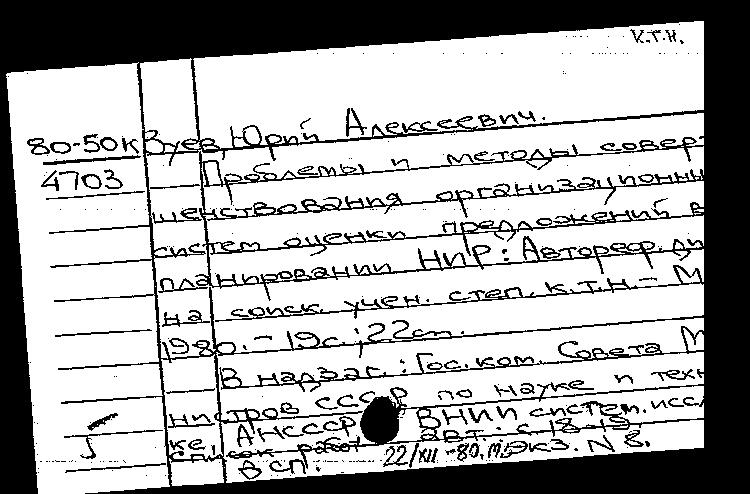 К.Т.Н.
80-50к Зуев, Юрий Алексеевич.
4703 Проблемы и методы совер
шенствования организационны
систем оценки предложений в
планировании НИР: Автореф. ди
на соиск. учен. степ. к.т.н. - М
1980. - 19с.; 22см.
В надзаг.: Гос. ком. Совета М
нистров СССР по науке и техн
ке, АНСССР ВНИИ систем. иссл
список работ авт. с. 18-19.
В СП. 22/XII -80. экз. N 8.